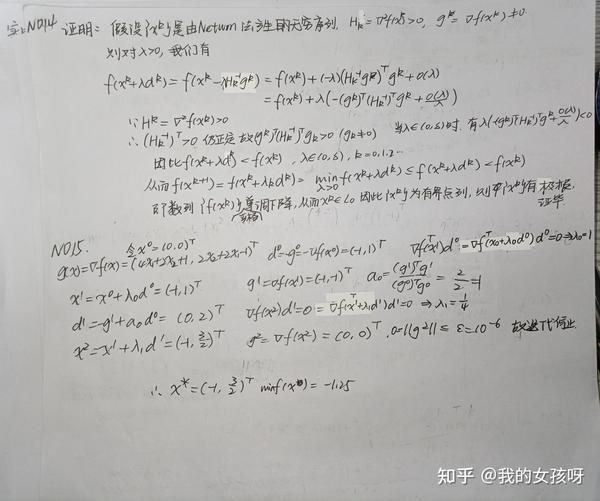 NO14 证明: 假设{x^k}是由Newton法产生的无穷序列. H_k = ∇²f(x^k)>0, g^k = ∇f(x^k)≠0
则对λ>0, 我们有
f(x^k+λd^k) = f(x^k-λH_k^{-1}g^k) = f(x^k)+(-λ)(H_k^{-1}g^k)^T g^k+o(λ)
= f(x^k)+λ(-(g^k)^T(H_k^{-1})^T g^k+o(λ)/λ)
∵ H^k = ∇²f(x^k)>0
∴ (H_k^{-1})^T>0 仍正定 故(g^k)^T(H_k^{-1})^T g_k>0 (g_k≠0) 当λ∈(0,δ)时, 有λ(-(g^k)^T(H_k^{-1})^T g^k+o(λ)/λ)<0
因此f(x^k+λd^k)<f(x^k), λ∈(0,δ), k=0,1,2…
从而f(x^{k+1}) = f(x^k+λ_k d^k) = min_{λ>0} f(x^k+λd^k) ≤ f(x^k+λd^k) < f(x^k)
即数列{f(x^k)}是严格单调下降, 从而x^k∈L_0 因此{x^k}为有界点列, 则{x^k}有极限.
证毕
NO15. 令x^0=(0,0)^T
g(x)=∇f(x)=(4x_1+2x_2+1, 2x_2+2x_1-1)^T d^0=-g^0=-∇f(x^0)=(-1,1)^T ∇f(x^1)^T d^0=∇f(x_0+λ_0d^0)^T d^0=0⇒λ_0=1
x^1=x^0+λ_0d^0=(-1,1)^T g^1=∇f(x^1)=(-1,-1)^T a_0=(g^1)^T g^1/(g^0)^T g^0=2/2=1
d^1=-g^1+a_0d^0=(0,2)^T ∇f(x^2)^T d^1=0=∇f(x^1+λ_1d^1)^T d^1=0⇒λ_1=1/4
x^2=x^1+λ_1d^1=(-1,3/2)^T g^2=∇f(x^2)=(0,0)^T, 0=||g^2||≤ε=10^{-6} 故迭代停止
∴ x*=(-1,3/2)^T minf(x*)=-1.25
知乎 @我的女孩呀